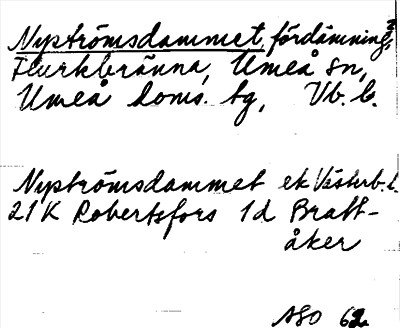 Nyströmsdammet, fördämning,
Flurkbränna, Umeå sn,
Umeå doms. tg, Vb. l.
Nyströmsdammet ek Västerb. l.
21 K Robertsfors 1d Bratt-
åker
ASO 62